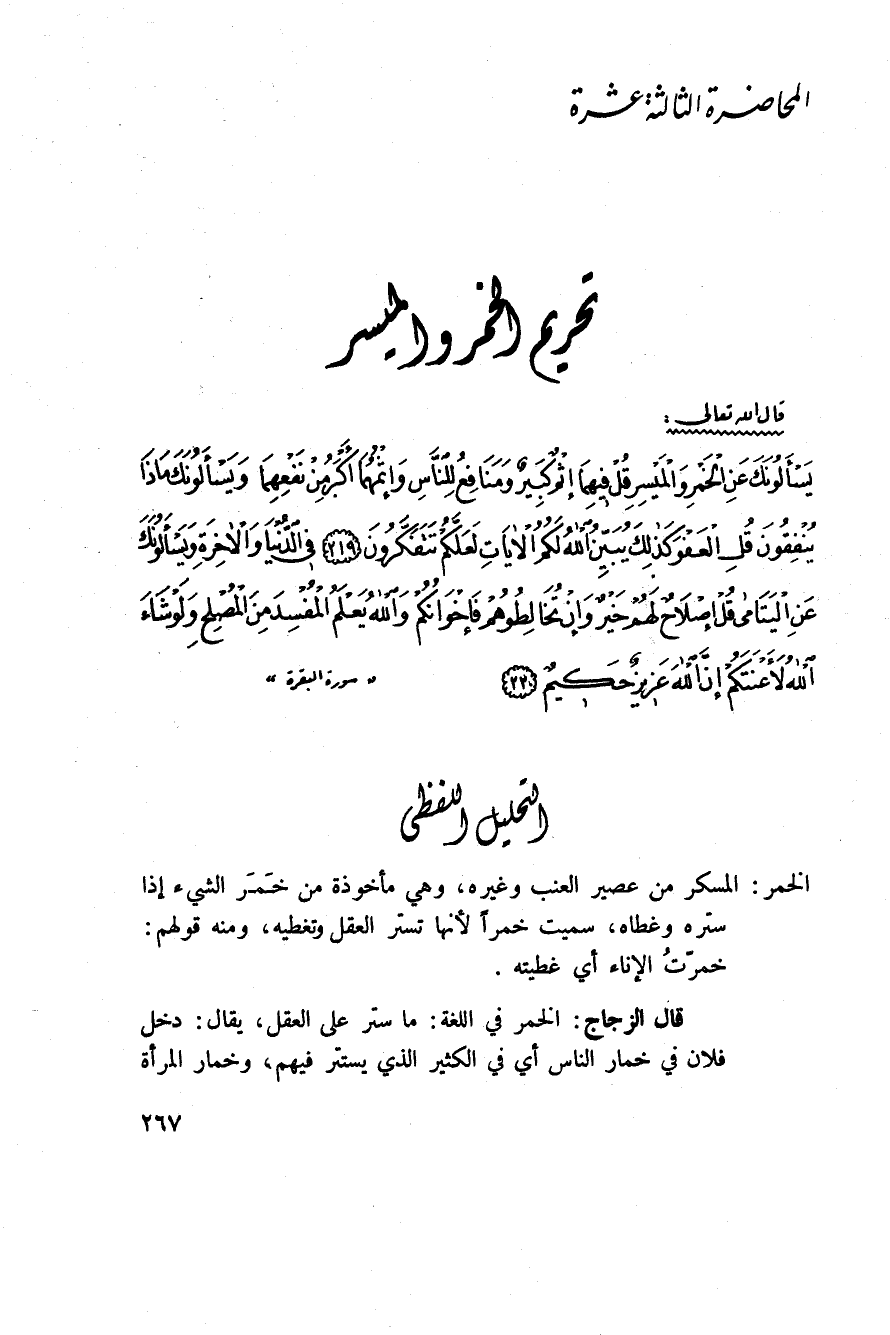 المحاضرة الثالثة عشرة
تحريم الخمر والميسر
قال الله تعالى :
يَسْأَلُونَكَ عَنِ الْخَمْرِ وَالْمَيْسِرِ قُلْ فِيهِمَا إِثْمٌ كَبِيرٌ وَمَنَافِعُ لِلنَّاسِ وَإِثْمُهُمَا أَكْبَرُ مِنْ نَفْعِهِمَا وَيَسْأَلُونَكَ مَاذَا
يُنْفِقُونَ قُلِ الْعَفْوَ كَذٰلِكَ يُبَيِّنُ اللّٰهُ لَكُمُ الْاٰيَاتِ لَعَلَّكُمْ تَتَفَكَّرُونَ ﴿٢١٩﴾ فِي الدُّنْيَا وَالْاٰخِرَةِ وَيَسْأَلُونَكَ
عَنِ الْيَتَامٰى قُلْ إِصْلَاحٌ لَهُمْ خَيْرٌ وَإِنْ تُخَالِطُوهُمْ فَإِخْوَانُكُمْ وَاللّٰهُ يَعْلَمُ الْمُفْسِدَ مِنَ الْمُصْلِحِ وَلَوْ شَاءَ
اللّٰهُ لَأَعْنَتَكُمْ إِنَّ اللّٰهَ عَزِيزٌ حَكِيمٌ ﴿٢٢٠﴾ « سورة البقرة »
التحليل اللفظي
الخمر : المسكر من عصير العنب وغيره، وهي مأخوذة من خَمَرَ الشيء إذا
ستره وغطاه، سميت خمراً لأنها تستر العقل وتغطيه، ومنه قولهم:
خمرّتُ الإناء أي غطيته .
قال الزجاج : الخمر في اللغة: ما ستر على العقل، يقال: دخل
فلان في خمار الناس أي في الكثير الذي يستتر فيهم، وخمار المرأة
٢٦٧